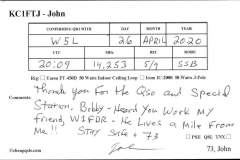 KC1FTJ - John
CONFIRMING QSO WITH DAY MONTH YEAR
W5L 26 APRIL 2020
UTC MHz RST MODE
20:09 14,253 5/9 SSB
Rig: Yaesu FT-450D 50 Watts Indoor Ceiling Loop Icom IC-2000 50 Watts J-Pole
Comments
Thank You For the Qso and Special
Station. Bobby - Heard You Work My
friend, W1FDR - He Lives a Mile From
Me!! Stay Safe + 73
PSE QSL TNX
John
73, John